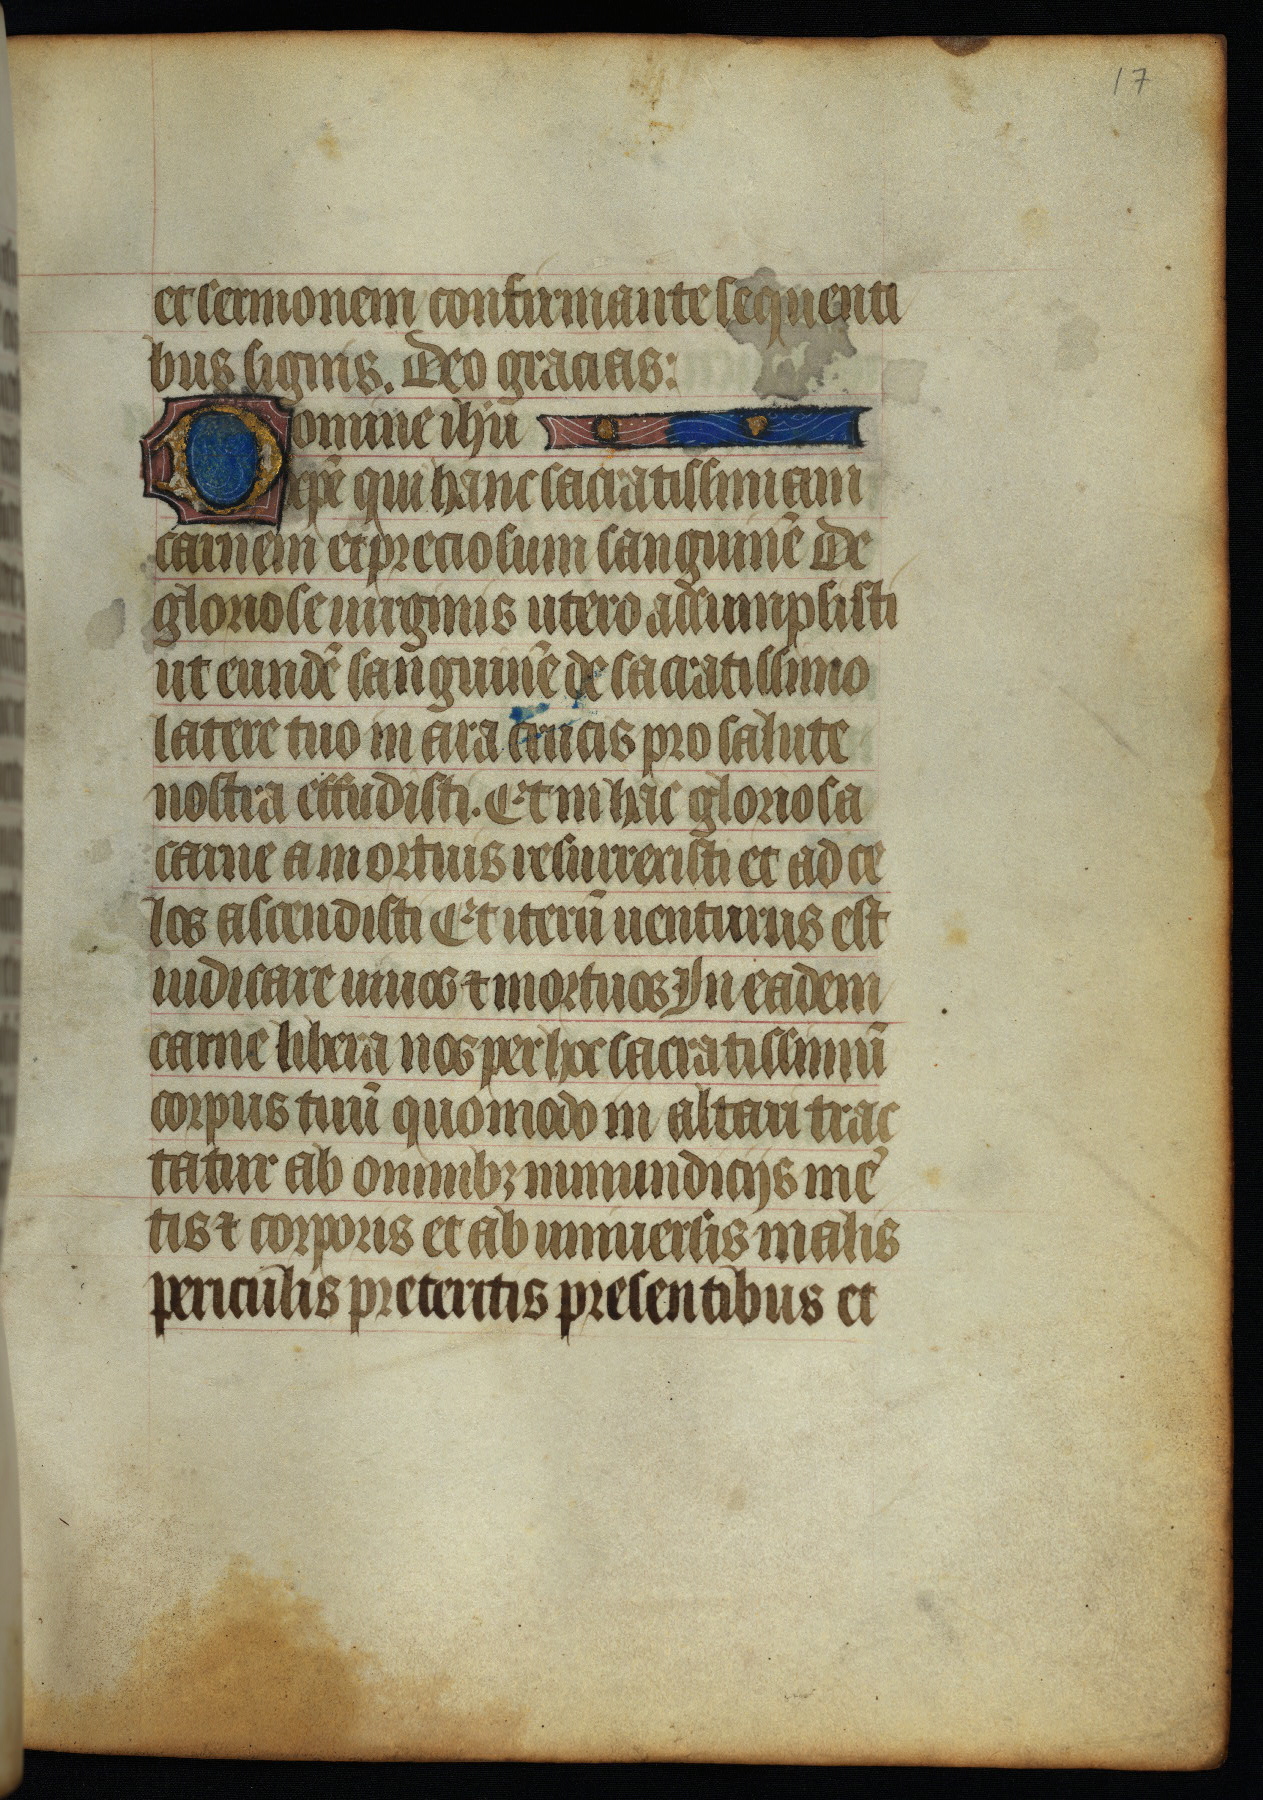 17
et sermonem confirmante sequenti
bus signis. Deo gracias:
Domine ihū
xpē qui hanc sacratissimam
carnem et preciosum sanguinē De
gloriose uirginis utero assumpsisti
ut eundē sanguinē de sacratissimo
latere tuo in ara crucis pro salute
nostra effudisti. Et in hac gloriosa
carne a mortuis resurrexisti et ad ce
los ascendisti Et iterū uenturus est
iudicare uiuos ⁊ mortuos In eadem
carne libera nos per hoc sacratissimū
corpus tuū quomodo in altari trac
tatur ab omnibꝫ inmundicijs mē
tis ⁊ corporis et ab uniuersis malis
periculis preteritis presentibus et